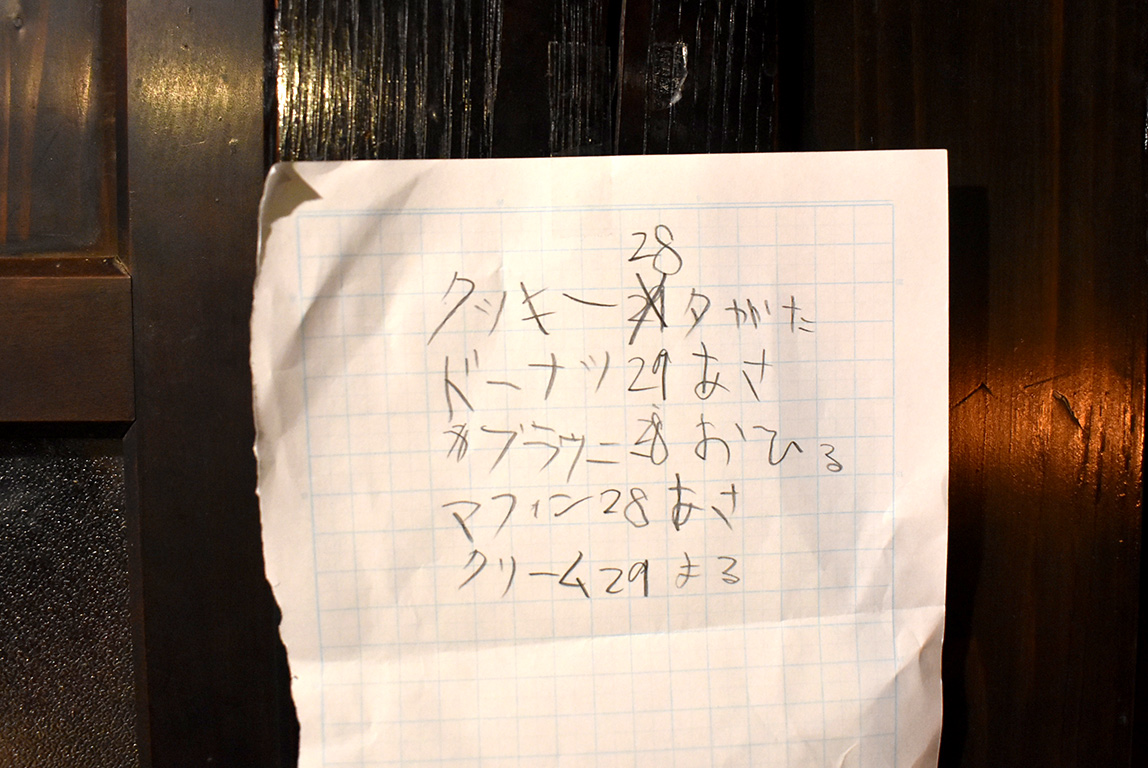 28
クッキー 夕がた
ドーナツ 29 あさ
ブラウニー 28 おひる
マフィン 28 あさ
クリーム 29 よる